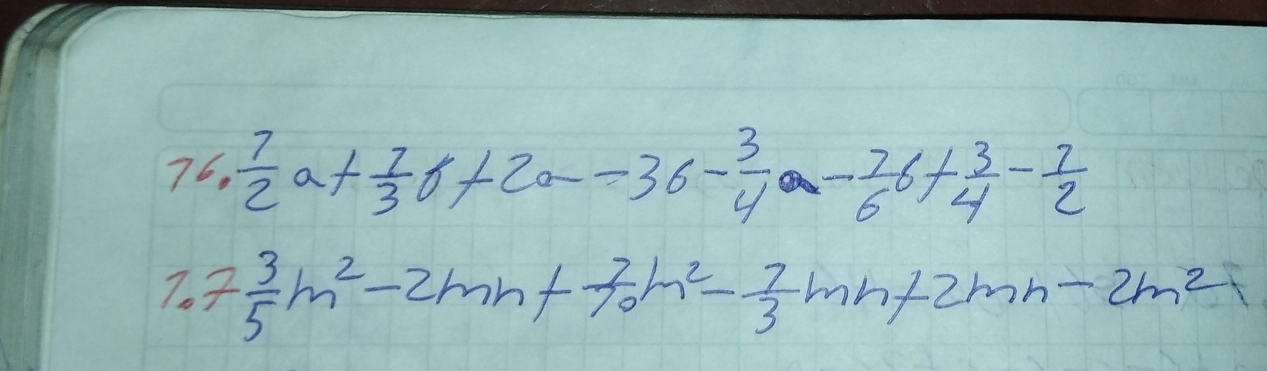 16. 1/2 a + 1/3 b + 2a - 3b - 3/4 a - 1/6 b + 3/4 - 1/2
1.7 3/5 m² - 2mn + 1/10 m² - 1/3 mn + 2mn - 2m²